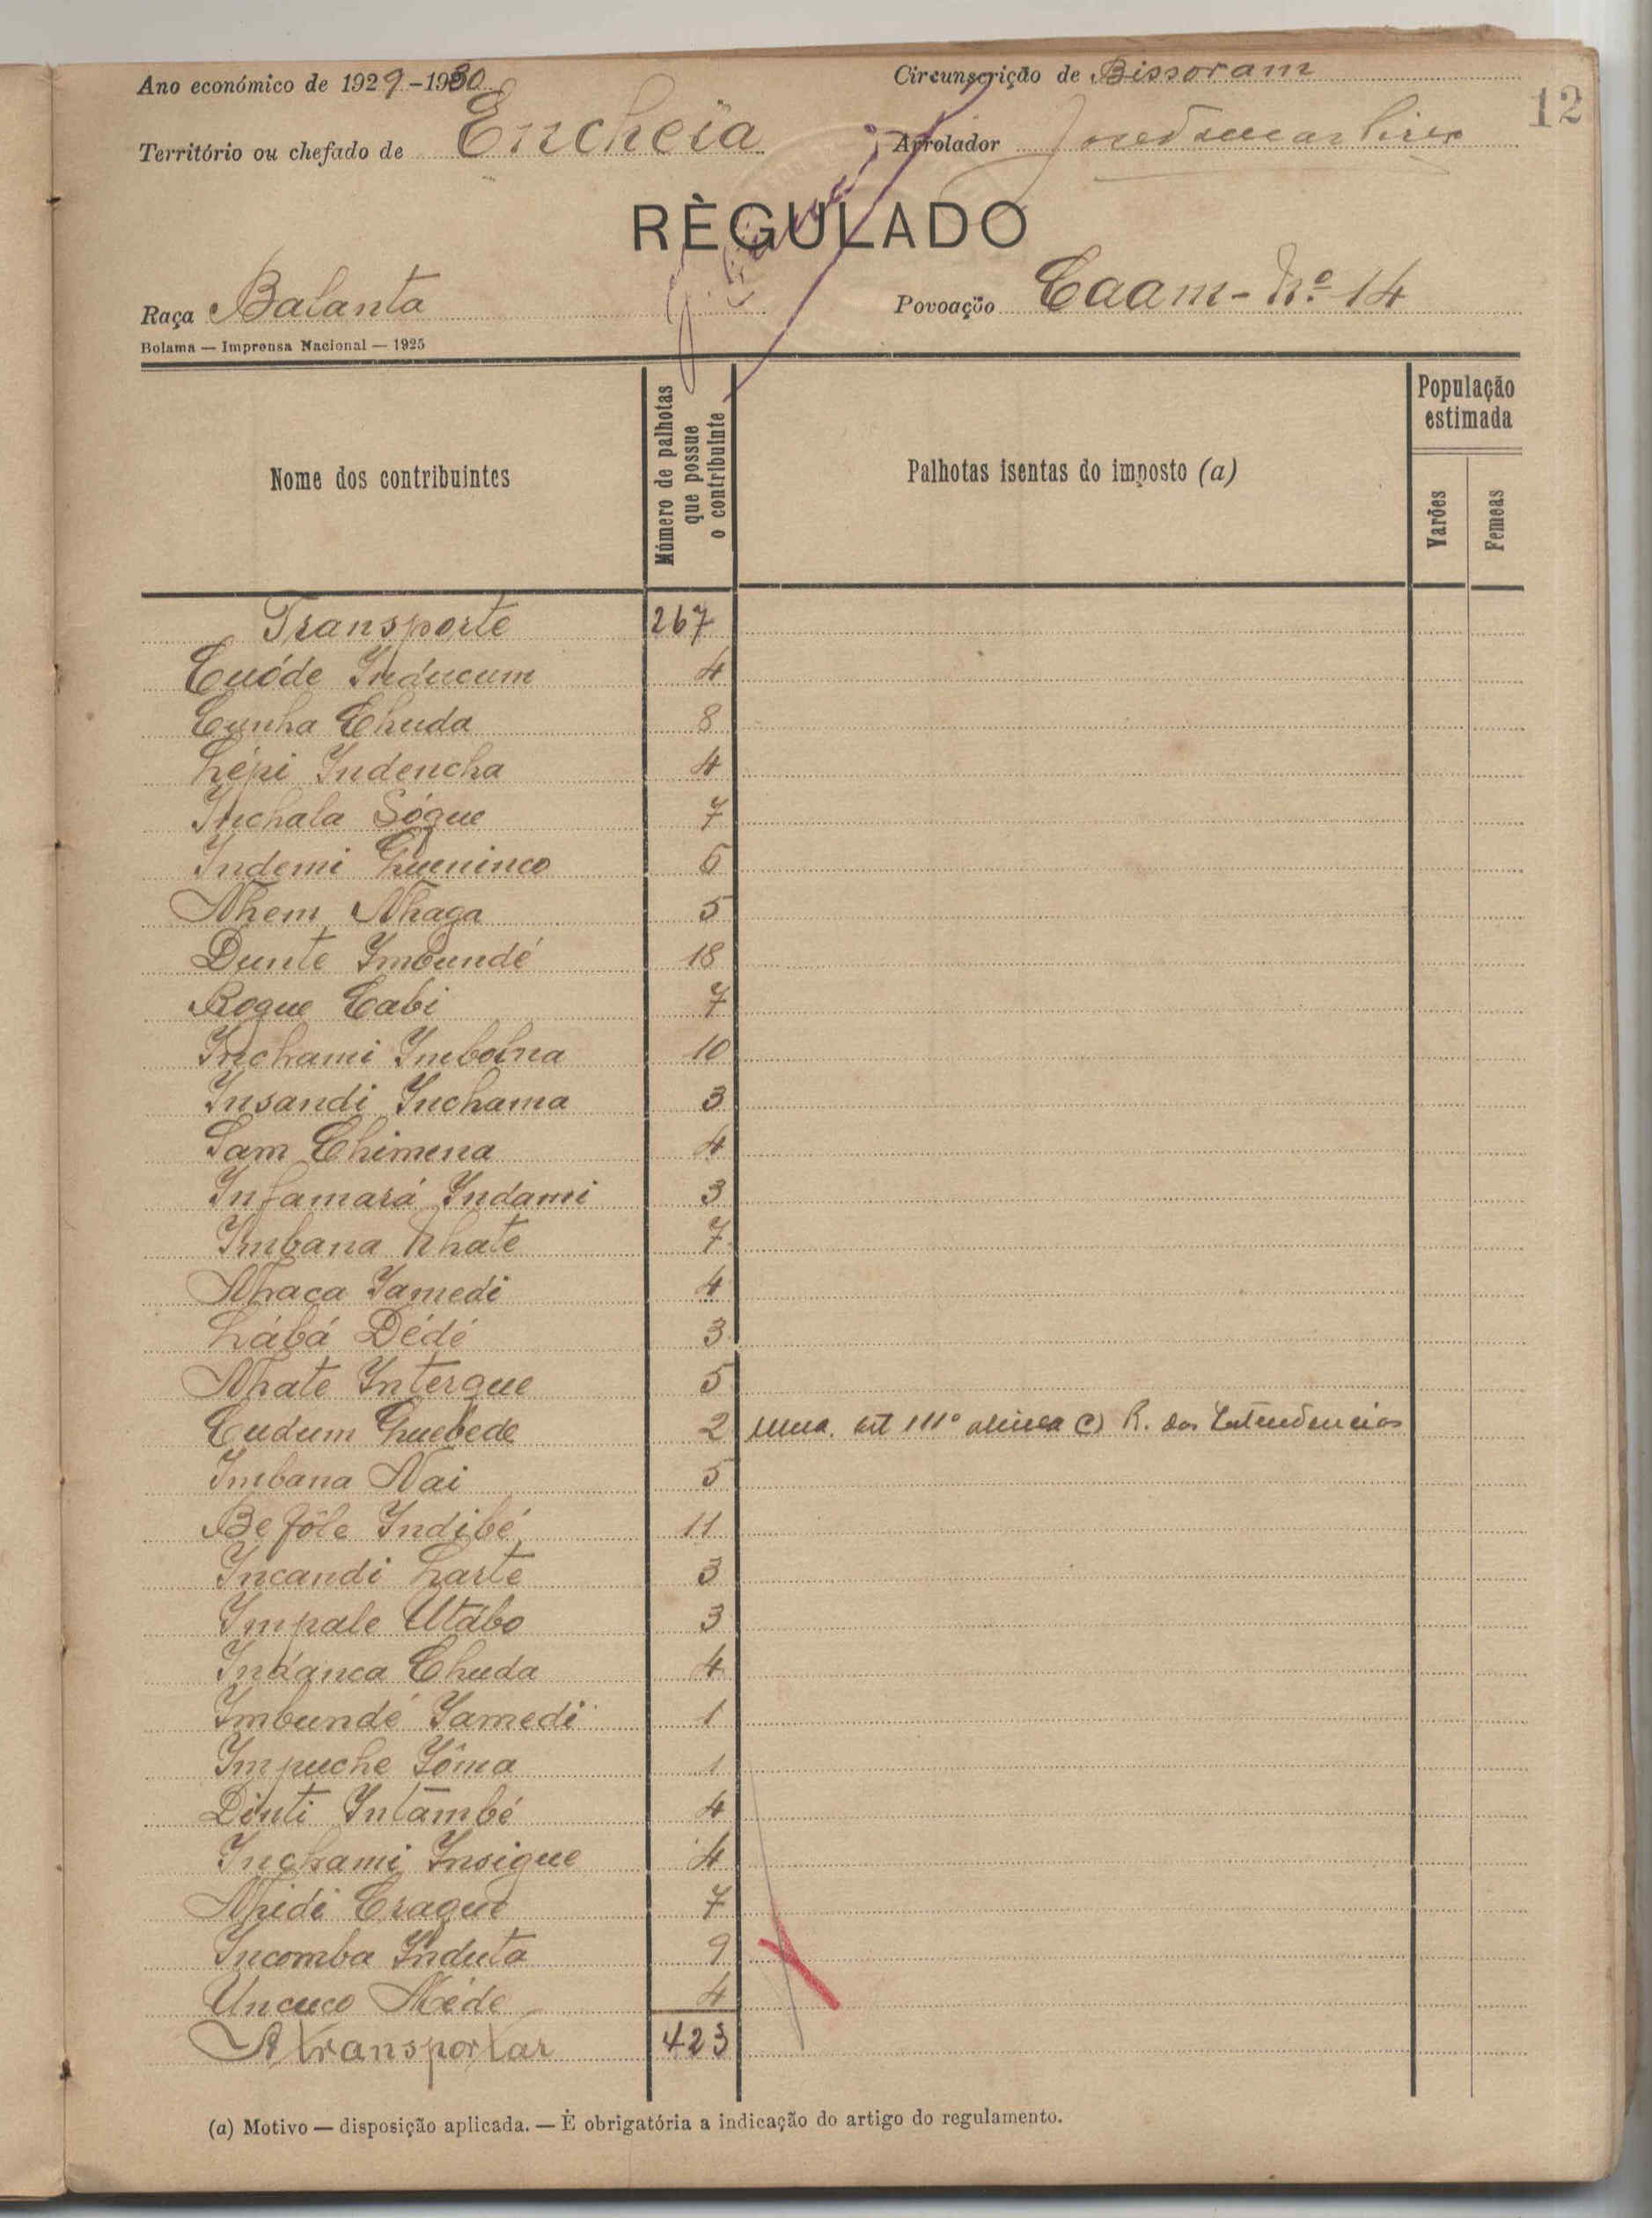 Ano económico de 1929-1930
Circunscrição de Bissoram
12
Território ou chefado de Encheia
Arrolador
RÈGULADO
Raça Balanta
Povoação Caam - Nº 14
Bolama — Imprensa Nacional — 1925
Nome dos contribuintes
Número de palhotas
que possue
o contribuinte
Palhotas isentas do imposto (a)
População
estimada
Varões
Femeas
Transporte 267
Cuóde Inducum 4
Cunha Chuda 8
Lépi Indencha 4
Inchala Sógue 7
Indemi Queninco 6
Nhem Nhaga 5
Dunte Imbundé 18
Rogue Cabi 7
Inchami Imbolna 10
Insandi Inchama 3
Sam Chimena 4
Infamará Indami 3
Imbana Nhate 7
Nhaca Iamedi 4
Lábá Dédé 3
Nhate Intergue 5
Cudum Quebede 2 uma. art 111º alinea C) R. das Intendencias
Imbana Nai 5
Befôle Indibé 11
Incandi Larte 3
Impale Utábo 3
Indanca Chuda 4
Imbundé Iamedi 1
Impuche Iôma 1
Dinti Intambé 4
Inchami Insigue 4
Nhidi Crague 7
Incomba Induta 9
Uncuco Méde 4
A transportar 423
(a) Motivo — disposição aplicada. — É obrigatória a indicação do artigo do regulamento.